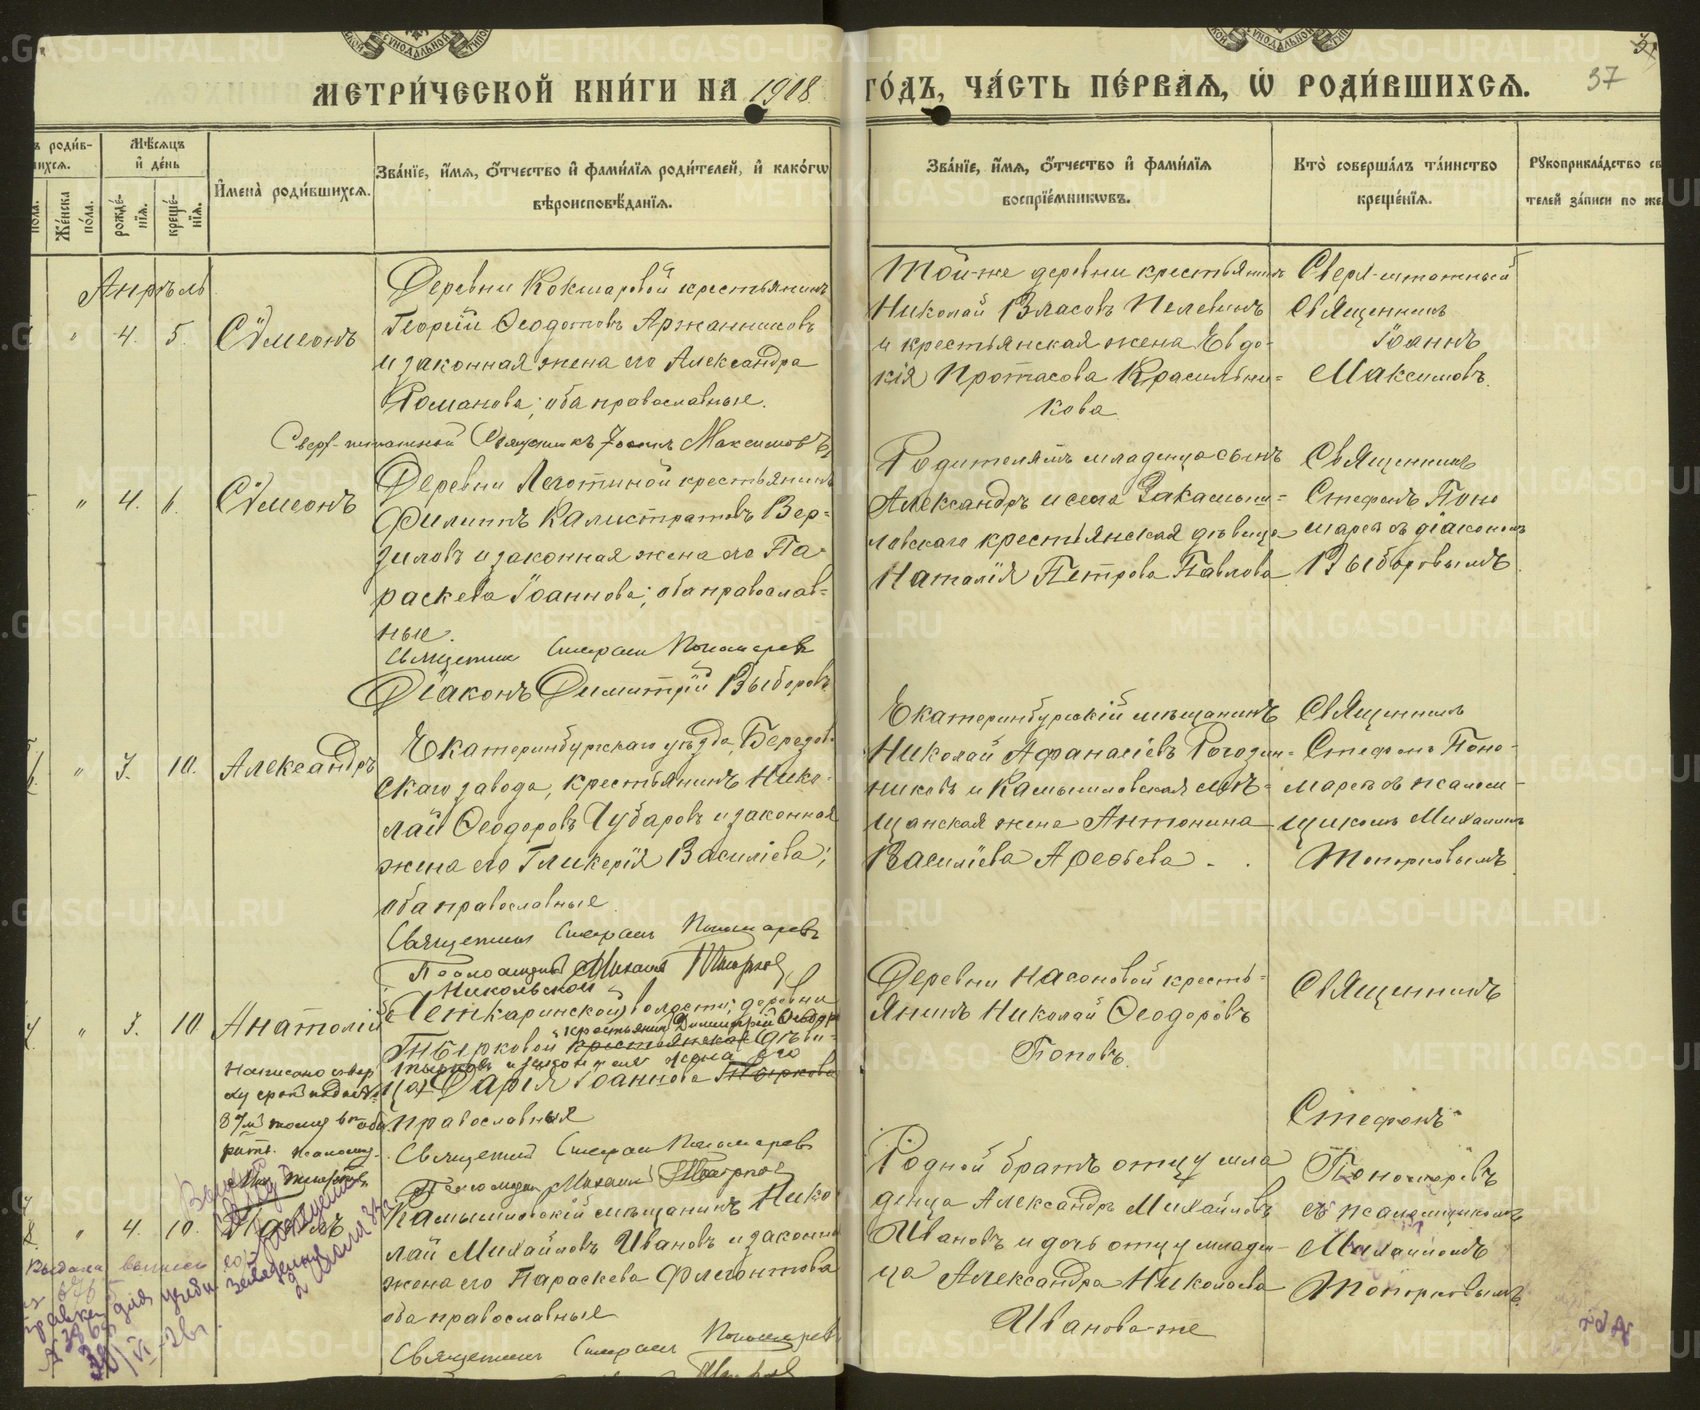 МЕТРИ́ЧЕСКОЙ КНИ́ГИ НА 1908 ГО́ДЪ, ЧА́СТЬ ПЕ́РВАѦ, Ѡ҆ РОДИ́ВШИХСѦ.
37
Мѣсѧцъ и҆ де́нь
Же́нска по́ла.
рожде́нїѧ.
креще́нїѧ.
И҆мена̀ роди́вшихсѧ.
Зва́нїе, и҆́мѧ, ѻ҆́тчество и҆ фами́лїѧ роди́телей, и҆ како́гѡ
вѣроисповѣ́данїѧ.
Зва́нїе, и҆́мѧ, ѻ҆́тчество и҆ фами́лїѧ
воспрїе́мникѡвъ.
Кто̀ соверша́лъ та́инство
креще́нїѧ.
Рꙋкоприкла́дство св
телей за́писи по же
Апрѣль
" 4. 5.
Сѵмеонъ
Деревни Кокшаровой крестьянинъ
Георгій Ѳеодотовъ Аржанниковъ
и законная жена его Александра
Романова; оба православные.
Сверх-штатной Священникъ Іоаннъ Максимовъ
Той-же деревни крестьянинъ
Николай Власовъ Пелевинъ
и крестьянская жена Евдо-
кія Протасова Красильни-
кова
Сверх-штатный
Священникъ
Іоаннъ
Максимовъ.
" 4. 6.
Сѵмеонъ
Деревни Леготиной крестьянинъ
Филиппъ Калистратовъ Вер-
зиловъ и законная жена его Па-
раскева Іоаннова; оба православ-
ные.
Священник Стефан Пономарев
Діаконъ Димитрій Выборовъ
Родителямъ младенца сынъ
Александръ и села Закамыш-
ловскаго крестьянская дѣвица
Наталія Петрова Павлова
Священникъ
Стефанъ Поно
маревъ съ діакономъ
Выборовымъ
" 3. 10.
Александръ
Екатеринбургскаго уѣзда, Березов-
скаго завода, крестьянинъ Нико-
лай Ѳеодоровъ Чубаровъ и законная
жена его Гликерія Васильева;
оба православные.
Священник Стефан Пономаревъ
Псаломщикъ Михаил Топорков
Екатеринбургскій мѣщанинъ
Николай Афанасіевъ Рогозин-
никовъ и Камышловская мѣ-
щанская жена Антонина
Василіева Арефьева
Священникъ
Стефанъ Поно-
маревъ съ псалом-
щикомъ Михаиломъ
Топорковымъ
" 3. 10
Анатолій
Никольской
волости, деревни
крестьянинъ Димитрій Ѳеодоров
Тыерковой крестьянская дѣви-
и законная жена его
ца Дарія Іоаннова Тыркова
православныя
Священник Стефан Пономарев
Псаломщик Михаил Топорков
Написано сверху
Деревни Насоновой кресть-
янинъ Николай Ѳеодоровъ
Поповъ.
Священникъ
Стефанъ
Пономаревъ
съ псаломщикомъ
Михаиломъ
Топорковымъ
" 4. 10.
Павелъ
Камышловскій мѣщанинъ Нико
лай Михайловъ Ивановъ и законная
жена его Параскева Флегонтова
оба православные
Священник Стефан Пономарев
Родной братъ отцу мла
денца Александръ Михайловъ
Ивановъ и дочь отцу младен-
ца Александра Николаева
Иванова-же
Выдана выпись
для учебн
заведения